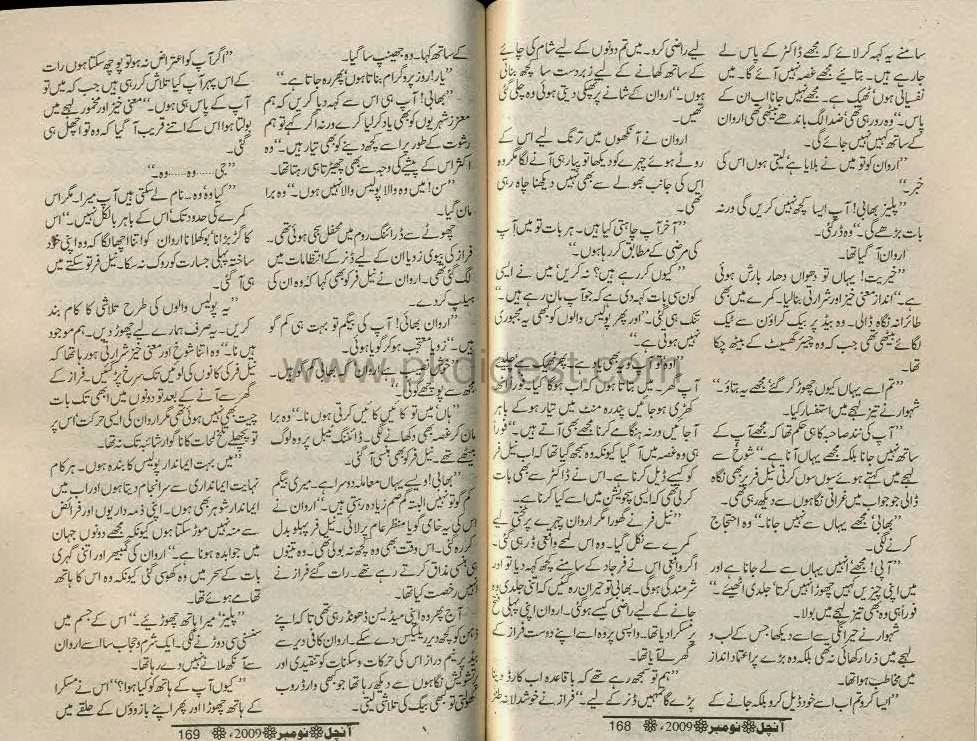 سامنے یہ کہہ کر لائے کہ مجھے ڈاکٹر کے پاس لے
جا رہے ہیں۔ بتائیے مجھے غصہ نہیں آئے گا۔ میں
نفسیاتی ہوں ٹھیک ہے۔ مجھے نہیں جانا اب ان کے
پاس۔“ وہ رو رہی تھی، ضد الگ باندھے بیٹھی تھی اروان
کے ساتھ کہیں نہیں جائے گی۔
”اروان کو تو میں نے بلایا ہے لیتی ہوں اس کی
خبر۔“
”پلیز بھابی! آپ ایسا کچھ نہیں کریں گی ورنہ
بات بڑھے گی۔“ وہ ڈر گئی۔
اروان آ گیا تھا۔
”خیریت! یہاں تو دھواں دھار بارش ہوئی
ہے۔“ انداز معنی خیز اور شرارتی بنا لیا۔ کمرے میں بھی
طائرانہ نگاہ ڈالی۔ وہ بیڈ پر بیک کراؤن سے ٹیک
لگائے بیٹھی تھی جب کہ وہ چیئر گھسیٹ کے بیٹھ چکا
تھا۔
”تم اسے یہاں کیوں چھوڑ کر گئے مجھے یہ بتاؤ۔“
شہوار نے تیز لہجے میں استفسار کیا۔
”آپ کی نند صاحبہ کا ہی حکم تھا کہ مجھے آپ کے
ساتھ نہیں جانا بلکہ مجھے یہاں آنا ہے۔“ شوخ سے
لہجے میں کہتے ہوئے سوں سوں کرتی نیل فر پر بھی نگاہ
ڈالی جو جواب میں غراتی نگاہوں سے دیکھ رہی تھی۔
”بھابی! مجھے یہاں سے نہیں جانا۔“ وہ احتجاج
کرنے لگی۔
”آپی! مجھے انہیں یہاں سے لے جانا ہے اور
میں اپنی چیزیں کہیں چھوڑا نہیں کرتا، جلدی اٹھیئے۔“
فوراً ہی وہ بھی تیز لہجے میں بولا۔
شہوار نے حیرانگی سے اسے دیکھا جس کے لب و
لہجے میں ذرا رکھائی نہ تھی بلکہ وہ بڑے پر اعتماد انداز
میں مخاطب ہوا تھا۔
”ایسا کرو تم اب اسے خود ڈیل کرو بلکہ جانے کے
لیے راضی کرو۔ میں تم دونوں کے لیے شام کی چائے
کے ساتھ کھانے کے لیے زبردست سا کچھ بناتی
ہوں۔“ اروان کے شانے پر تھپکی دیتی ہوئی وہ چلی گئی
تھیں۔
اروان نے آنکھوں میں ترنگ لیے اس کے
روٹے ہوئے چہرے کو دیکھا تو پیار ہی آنے لگا مگر وہ
اس کی جانب بھولے سے بھی نہیں دیکھنا چاہ رہی
تھی۔
”آخر آپ چاہتی کیا ہیں۔ ہر بات تو میں آپ
کی مرضی کے مطابق کر رہا ہوں۔“
”کیوں کر رہے ہیں؟ نہ کریں میں نے ایسی
کون سی بات کہہ دی ہے کہ جو آپ مان رہے ہیں۔“
تنک ہی گئی۔ ”اور پھر پولیس والوں کو بھی یہ مجبوری
نہیں ہوتی ہے۔“
کھڑی ہو جائیں پندرہ منٹ میں تیار ہو کے باہر
آ جائیں ورنہ ہنگامے کرنا مجھے بھی آتے ہیں۔“ فوراً
ہی وہ غصہ میں آ گیا کیونکہ وہ سمجھ گیا تھا کہ اب نیل فر
کو کیسے ڈیل کرنا ہے۔ اس نے ڈاکٹر سے بھی بات
کر لی تھی کہ ایسی چویشن میں اسے کیا کرنا ہے۔
”نیل فر نے گھورا مگر اروان چہرے پر سختی لیے
کمرے سے نکل گیا۔ وہ اس لمحے واقعی ڈر گئی تھی۔
اگر واقعی اس نے فرحاد کے سامنے کچھ کہہ دیا تو اور
شرمندگی ہو گی۔ بھابی تو حیران رہ گئیں کہ اتنی جلدی وہ
جانے کے لیے راضی کیسے ہو گئی۔ اروان اپنی پہلی فتح
پر مسکرا دیا تھا۔ واپسی پر وہ اسے اپنے دوست فراز کے
گھر لے آیا تھا۔
”ہم تو سمجھ رہے تھے کہ باقاعدہ اب کارڈ دینا
پڑے گا تمہیں ڈنر کے لیے۔“ فراز نے خوشدلانہ طنز
آنچل نومبر ۲۰۰۹ء 168
کے ساتھ کہا۔ وہ جھینپ سا گیا۔
”یار! روز پروگرام بناتا ہوں پھر رہ جاتا ہے۔“
”بھابی! آپ ہی اس سے کہہ دیا کریں کہ ہم
معزز شہریوں کو بھی یاد کر لیا کرے ورنہ اگر کہے تو ہم
رشوت کے طور پر اسے کچھ دینے کو بھی تیار ہیں۔“ وہ
اکثر اس کے پیشے کی وجہ سے بھی چھیڑتا ہی رہتا تھا۔
”سن! میں وہ والا پولیس والا نہیں ہوں۔“ وہ برا
مان گیا۔
چھوٹے سے ڈرائنگ روم میں محفل سجی ہوئی تھی۔
فراز کی بیوی زوبا ان کے لیے ڈنر کے انتظامات میں
لگ گئی تھی۔ اروان نے نیل فر کو بھی کہا کہ وہ ان کی
ہیلپ کر دے۔
”اروان بھائی! آپ کی بیگم تو بہت ہی کم گو
ہیں۔“ زوبا متعجب ہو کر گویا ہوئی۔
”ہاں میں تو کائیں کائیں کرتی ہوں نا۔“ وہ برا
مان کر غصہ بھی دکھانے لگی۔ ڈائننگ ٹیبل پر وہ لوگ
بیٹھے تھے۔ نیل فر کو بھی ہنسی آ گئی۔
”بھابی! ویسے یہاں معاملہ دوسرا ہے۔ میری بیگم
کم گو تو نہیں البتہ گم صم زیادہ رہتی ہیں۔“ اروان نے
اس کی یہ خامی گویا منظر عام پر لائی۔ نیل فر پہلو بدل
کر رہ گئی۔ اس وقت بھی وہ کچھ نہ بولی تھی۔ وہ تینوں
ہی ہنسی مذاق کرتے رہے تھے۔ رات گئے فراز نے
انہیں رخصت کیا تھا۔
آج پھر وہ اپنی میڈیسن ڈھونڈ رہی تھی تاکہ اپنے
ذہن کو کچھ دیر ریلیکس دے سکے۔ اروان کافی دیر سے
بیڈ پر نیم دراز اس کی حرکات و سکنات کو تنقیدی اور
پر تشویش نگاہوں سے دیکھ رہا تھا جو بھی وارڈ روب
کھولتی تو بھی بیگ کی تلاشی لیتی۔
”اگر آپ کو اعتراض نہ ہو تو پوچھ سکتا ہوں رات
کے اس پہر آپ کیا تلاش کر رہی ہیں جب کہ میں تو
آپ کے پاس ہی ہوں۔“ معنی خیز اور مخمور لہجے میں
بولتا ہوا اس کے اتنے قریب آ گیا کہ وہ تو اچھل ہی
گئی۔
”جی......وہ......وہ۔“
”کیا وہ وہ...... نام لے سکتی ہیں آپ میرا۔ مگر اس
کمرے کی حدود تک اس کے باہر بالکل نہیں۔“ اس
کا گڑبڑانا، بوکھلانا اروان کو اتنا اچھا لگا کہ وہ اپنی خود
ساختہ پہلی جسارت کو روک نہ سکا۔ نیل فر تو سکتے میں
ہی آ گئی۔
”یہ پولیس والوں کی طرح تلاشی کا کام بند
کریں۔ یہ صرف ہمارے لیے چھوڑ دیں۔ ہم موجود
ہیں نا۔“ وہ اتنا شوخ اور معنی خیز شرارتی ہو رہا تھا کہ
نیل فر کی کانوں کی لوئیں تک سرخ پڑ گئیں۔ فراز کے
گھر سے آنے کے بعد تو دونوں میں ابھی تک بات
چیت بھی نہیں ہوئی تھی مگر اروان کی ایسی حرکت، اس پر
تو پچھلے تلخ لمحات کا گویا شائبہ تک نہ تھا۔
”میں بہت ایماندار پولیس کا بندہ ہوں۔ ہر کام
نہایت ایمانداری سے سرانجام دیتا ہوں اور اب میں
ایماندار شوہر بھی ہوں۔ اپنی ذمہ داریوں اور فرائض
سے منہ نہیں موڑ سکتا ہوں کیونکہ مجھے دونوں جہان
میں جوابدہ ہونا ہے۔“ اروان کی گمبھیر اور اتنی گہری
بات کے سحر میں وہ کھوسی گئی کیونکہ وہ اس کا ہاتھ
تھامے ہوئے تھا۔
”پلیز! میرا ہاتھ چھوڑیئے۔“ اس کے جسم میں
سنسنی سی دوڑنے لگی۔ ایک شرم و حجاب سا اسے اروان
سے آنکھ ملانے نہیں دے رہا تھا۔
”کیوں آپ کے ہاتھ کو کیا ہوا؟“ اس نے مسکرا
کے ہاتھ چھوڑا اور پھر اپنے بازوؤں کے حلقے میں
آنچل نومبر ۲۰۰۹ء 169